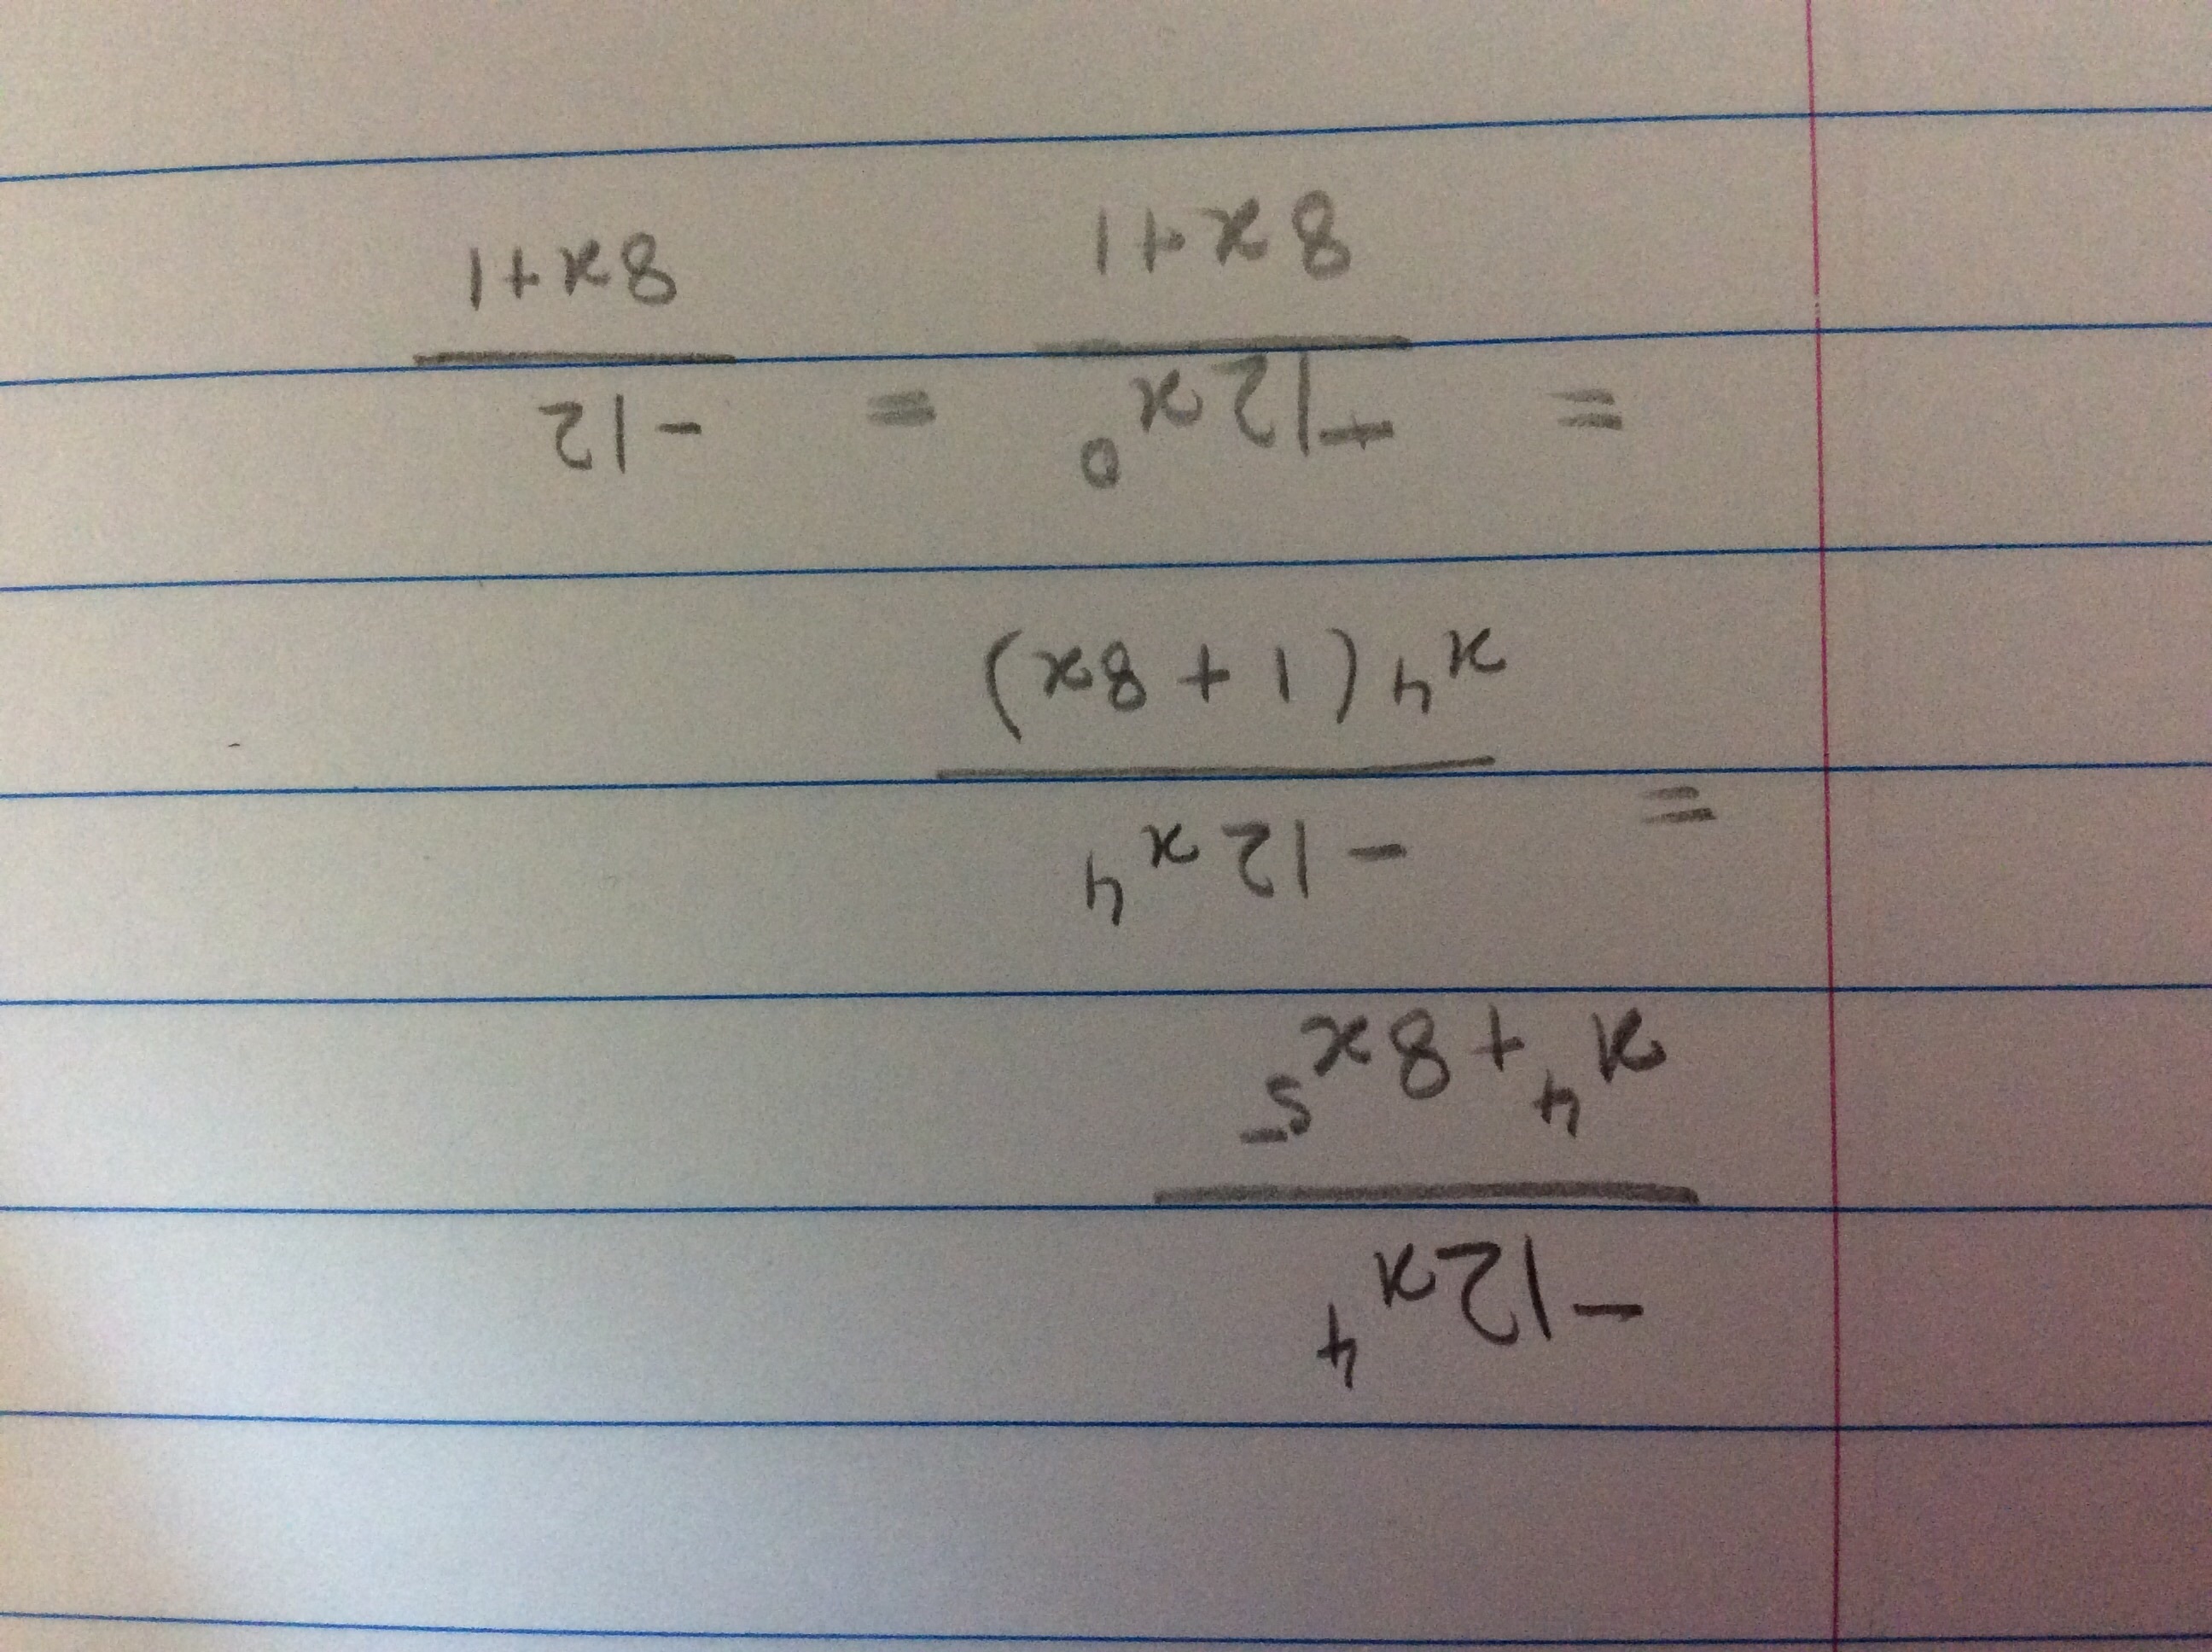 -12x⁴
x⁴ + 8x⁵
= -12x⁴
x⁴(1 + 8x)
= -12x⁰ = -12
8x+1 8x+1